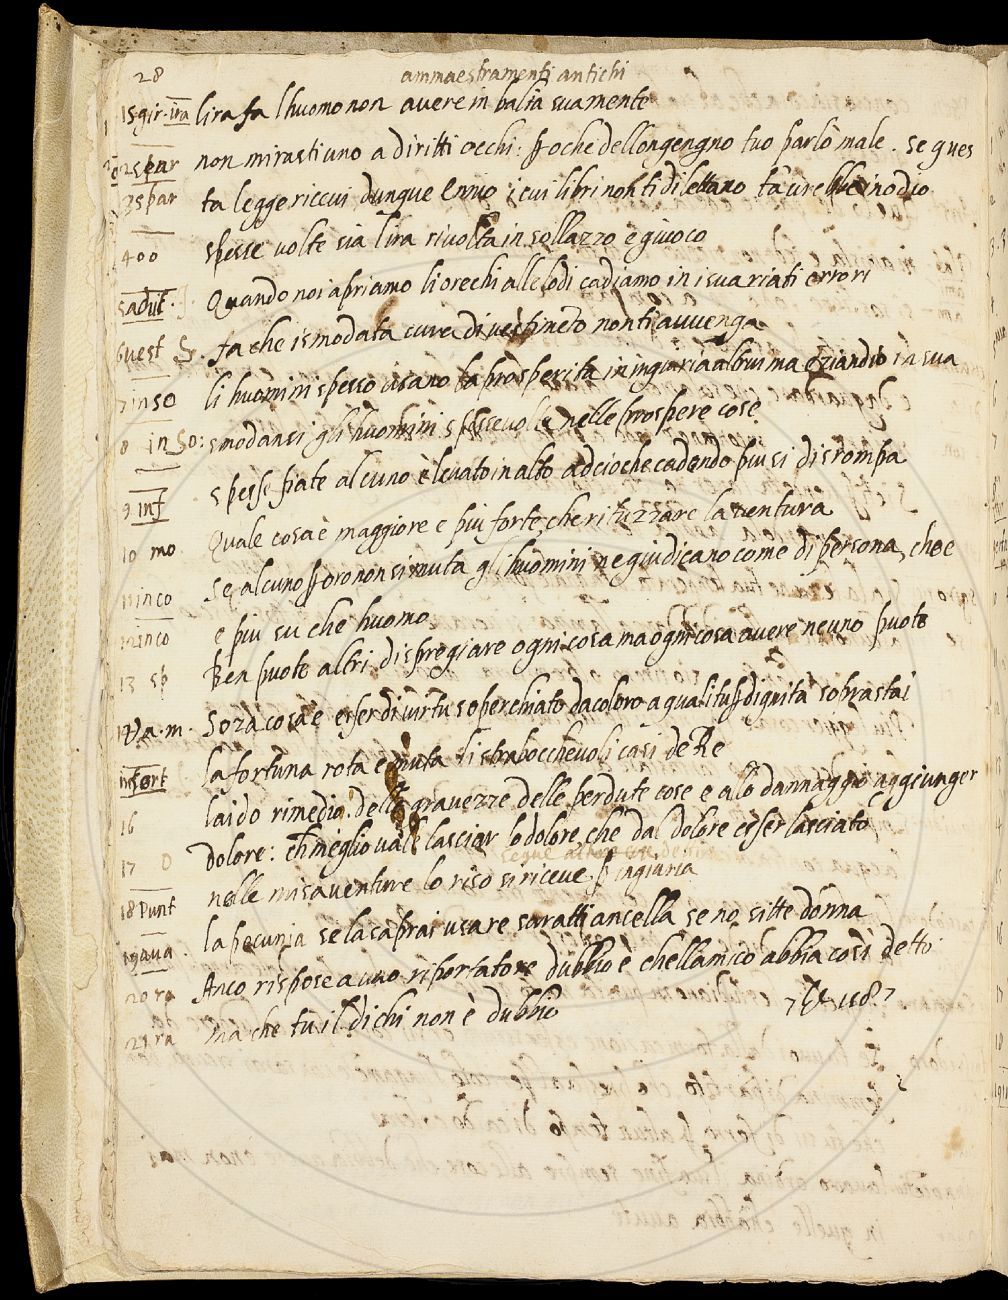 28
ammaestramenti antichi
15 gir. ira lira fa lhuomo non avere in balia sua mente
2 spar non mirasti uno a diritti occhi: po che dellongengno tuo parlò male. se ques
3 spar ta legge riccui dunque Ennio i cui libri non ti dilettano in odio
400 spesse volte sia lira rivolta in sollazzo e givoco
5 adul. Quando noi apriamo li orechi alle lodi cadiamo in isuariati errori
6 vest fa che ismodata cura di vestimeto non ti avvenga
7 inso li huomini spesso usano la prosperita in ingiuria altrui ma eziandio in sua
8 in So: smodansi gli huomini spessevolte nelle prospere cose
9 inf spesse fiate alcuno è levato in alto adcioche cadendo piu si disrompa
10 mo Quale cosa è maggiore e più forte che rituzzare la ventura
11 inco Se alcuno poro non si muta gli huomini ne giudicano come di persona che e
12 inco e piu su che huomo
13 sp Ben puote altri dispregiare ogni cosa ma ogni cosa avere neuno puote
14 Va. m. Soza cosa è esser di virtu soperchiato da coloro a quali tu p dignita sobrastai
15 fort la fortuna rota e muta li strabocchevoli casi de Re
16 laido rimedio delle gravezze delle perdute cose e alo dannaggio aggiunger
17 dolore: ch meglio vale lasciar lo dolore che dal dolore esser lasciato
nelle misaventure lo riso si riceve p ingiuria
18 Punt
19 ava. la pecunia se la saprai usare saratti ancella se no sitte donna
20 ra Anco rispose a uno riportatore dubbio è chellamico abbia così detto
21 ra ma che tu il dichi non è dubbio